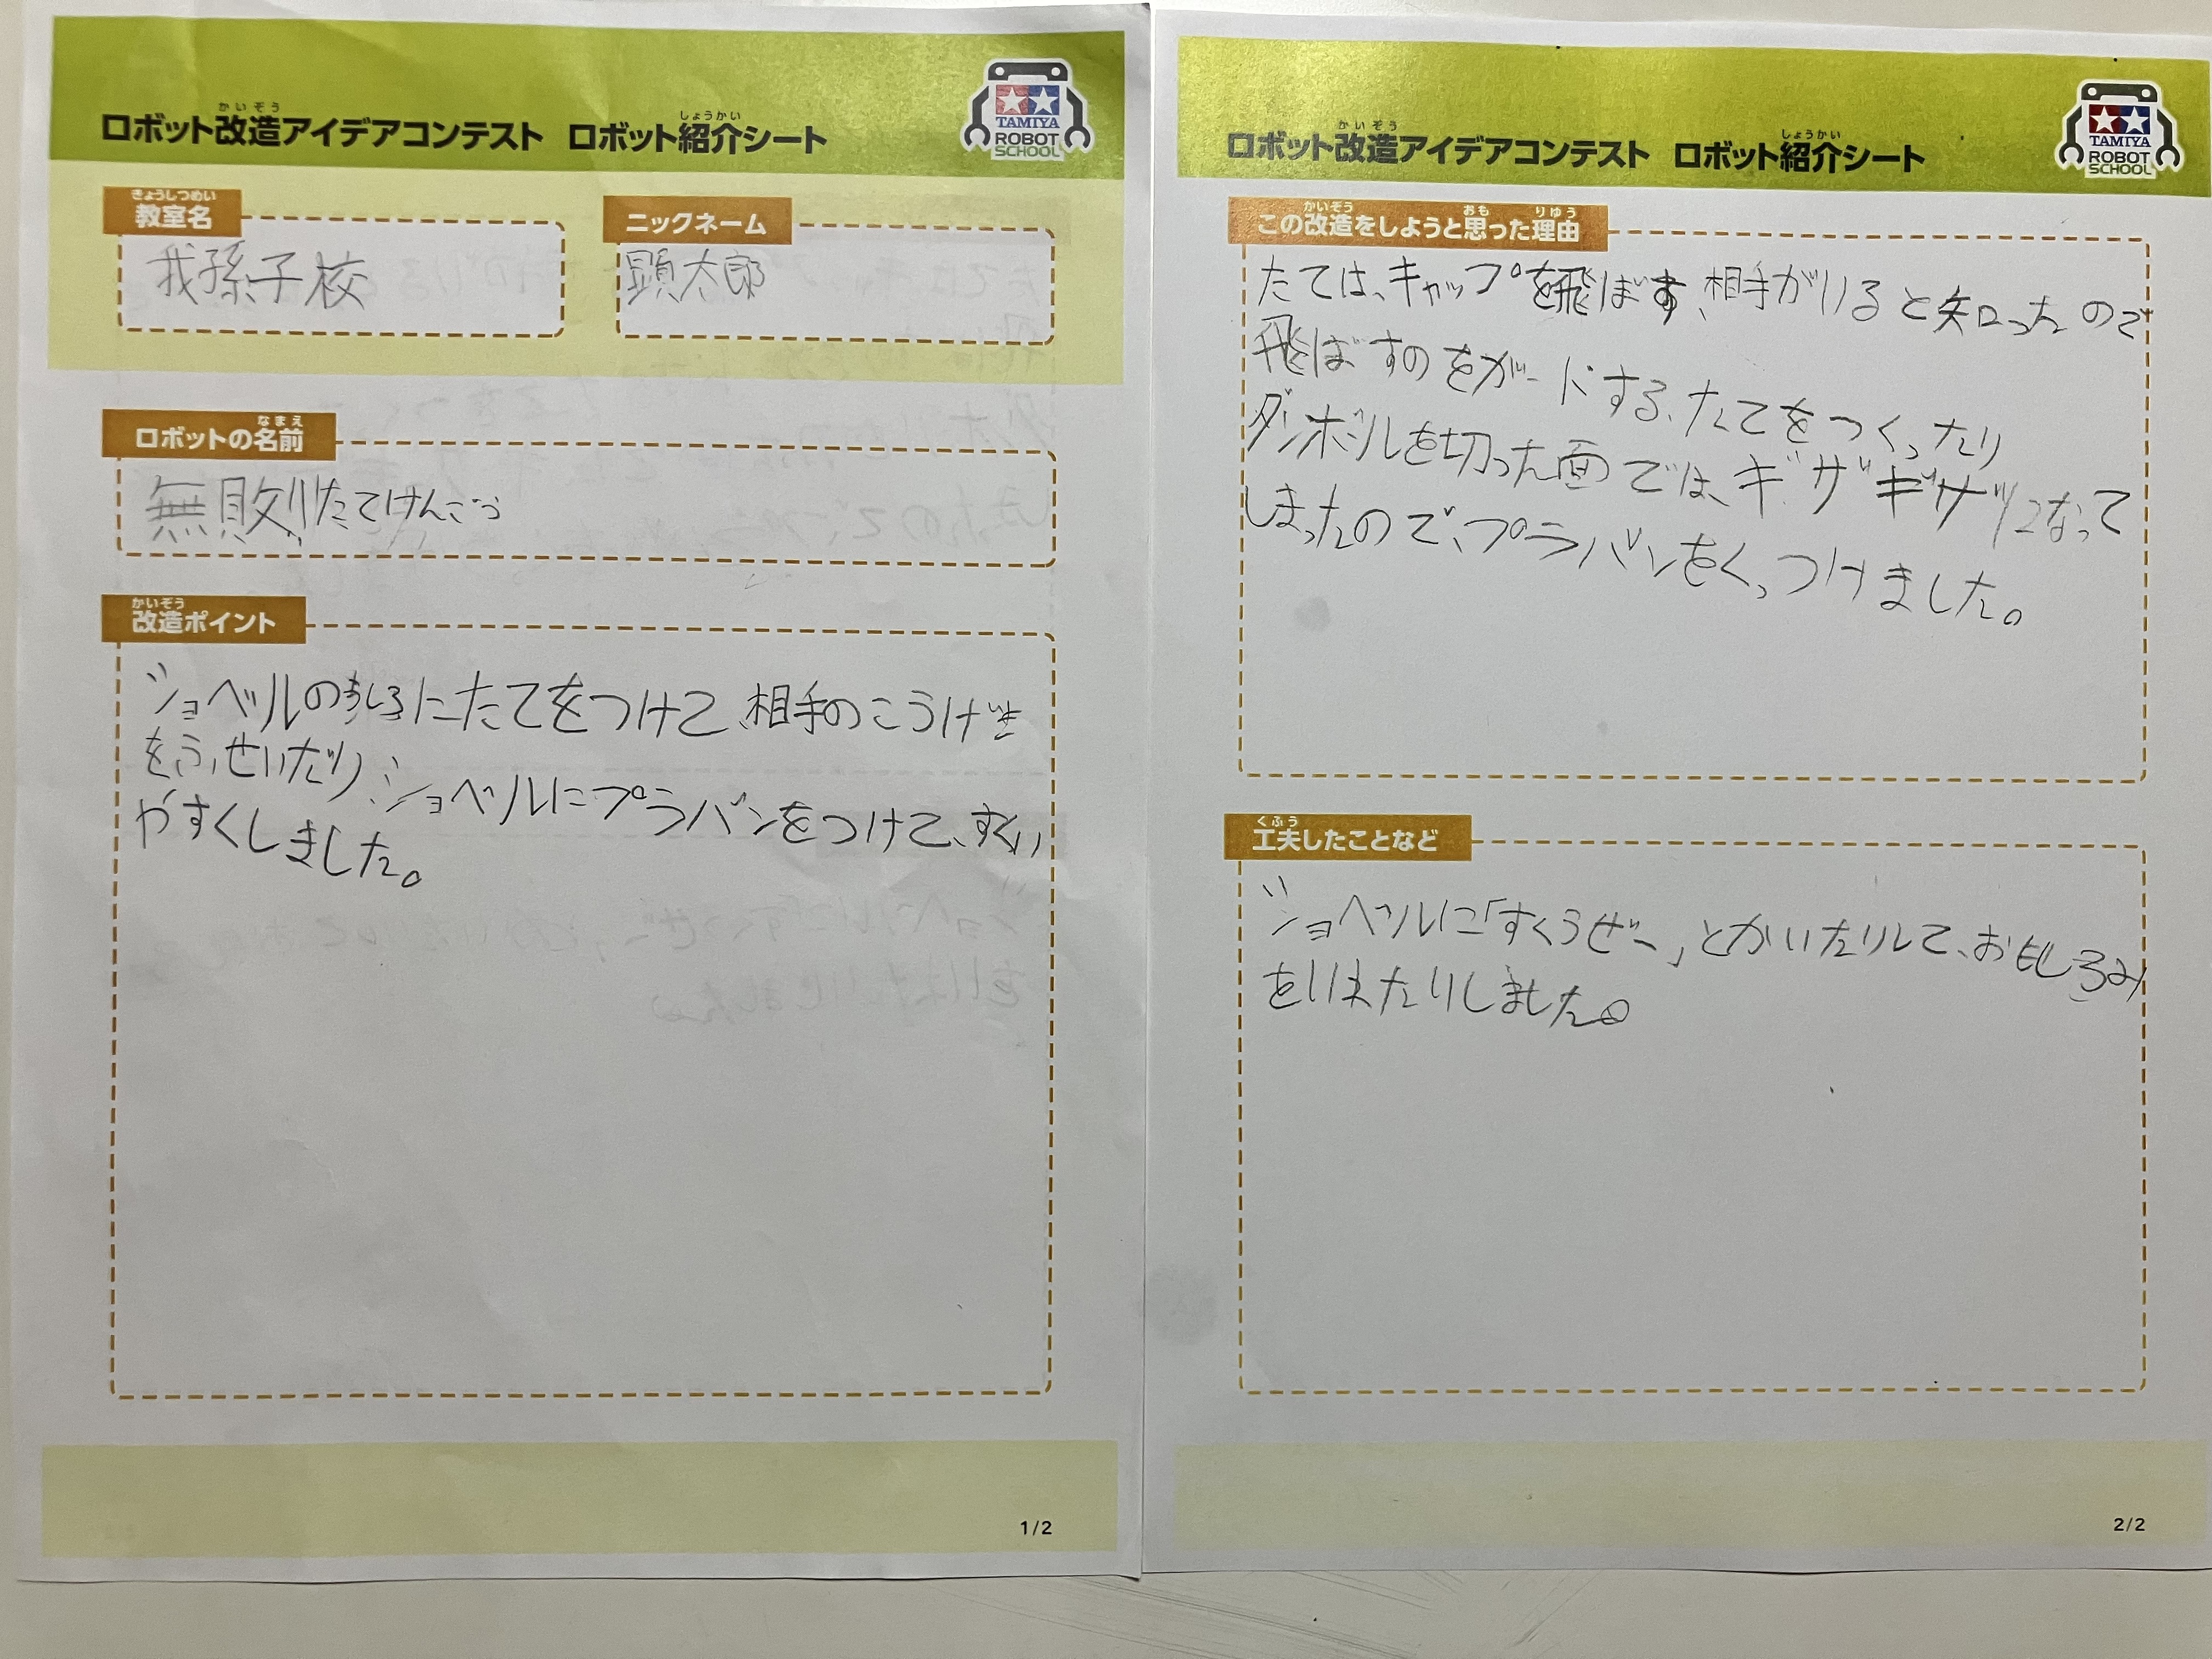 ロボット改造アイデアコンテスト ロボット紹介シート
かいぞう
しょうかい
TAMIYA
ROBOT
SCHOOL
きょうしつめい
教室名
我孫子校
ニックネーム
顕太郎
なまえ
ロボットの名前
無敗!たてけんごう
かいぞう
改造ポイント
ショベルのうしろにたてをつけて、相手のこうげき
をふせいだり、ショベルにプラバンをつけて、すくい
やすくしました。
1/2
ロボット改造アイデアコンテスト ロボット紹介シート
かいぞう
しょうかい
TAMIYA
ROBOT
SCHOOL
かいぞう おも りゆう
この改造をしようと思った理由
たては、キャップを飛ばす、相手がいると知ったので
飛ばすのをガードする、たてをつくったり
ダンボールを切った面では、ギザギザになって
しまったので、プラバンをくっつけました。
くふう
工夫したことなど
ショベルに「すくうぜー」とかいたりして、おもしろみ
をいれたりしました。
2/2